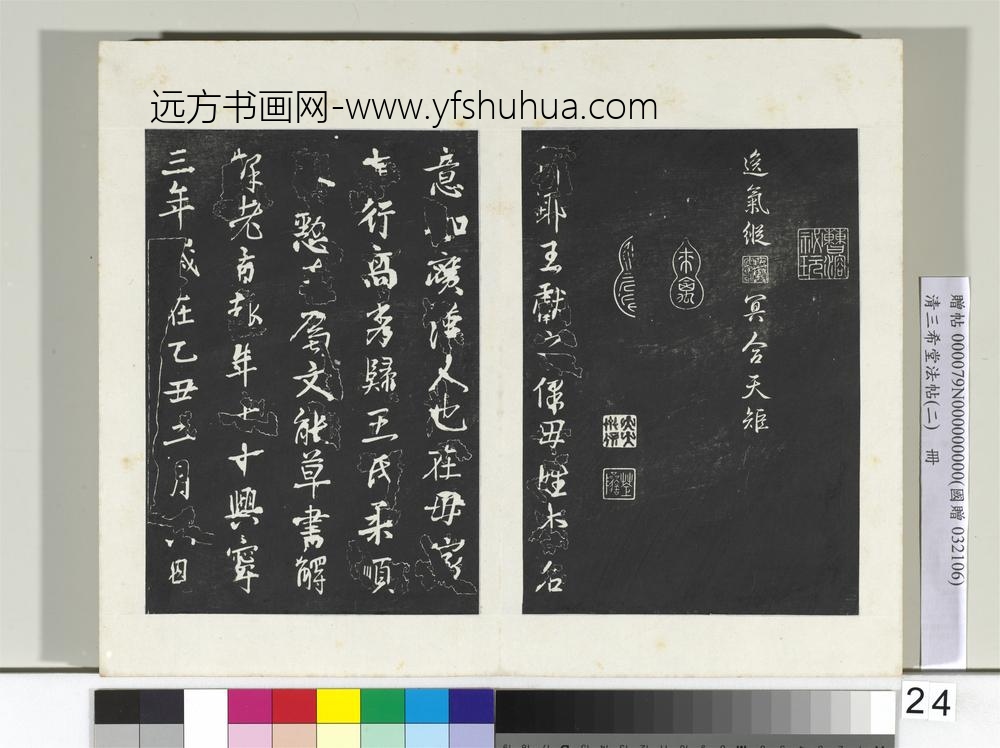 远方书画网-www.yfshuhua.com
逸氣縱
冥合天矩
耶王獻之保母姓李名
意如廣漢人也在母家
志行高秀歸王氏柔順
懃 屬文能草書解
釋老旨趣年七十興寧
三年歲在乙丑二月六日
贈帖 000079N000000000(國贈 032106)
清三希堂法帖(二) 冊
24